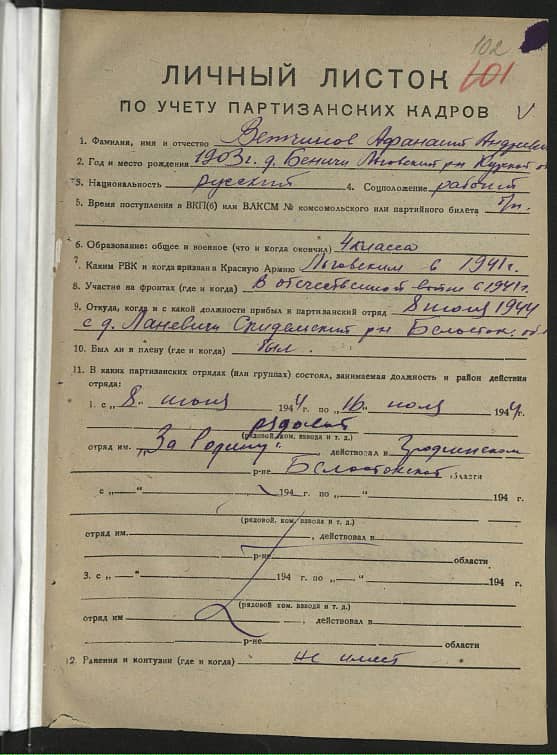 102
101
ЛИЧНЫЙ ЛИСТОК
ПО УЧЕТУ ПАРТИЗАНСКИХ КАДРОВ
1. Фамилия, имя и отчество Афанасий Андреев
2. Год и место рождения 1903 г. д. Беничи Льговский рн Курской о
3. Национальность русский 4. Соцположение рабочий
5. Время поступления в ВКП(б) или ВЛКСМ № комсомольского или партийного билета б/п.
6. Образование: общее и военное (что и когда окончил) 4 класса
7. Каким РВК и когда призван в Красную Армию Льговским в 1941 г.
8. Участие на фронтах (где и когда) В отечественной войне с 1941 г.
9. Откуда, когда и с какой должности прибыл в партизанский отряд 8 июня 1944
с д. Ланевичи Скидемский рн Белосток. об
10. Был ли в плену (где и когда) был.
11. В каких партизанских отрядах (или группах) состоял, занимаемая должность и район действия
отряда:
1. с „ 8 “ июня 1944 г. по „ 16 “ июля 1944 г.
рядовой
(рядовой, ком. взвода и т. д.)
отряд им. „За Родину“ действовал в Гродненском
р-не Белостокской области
с „ “ 194 г. по „ “ 194 г.
(рядовой, ком. взвода и т. д.)
отряд им. , действовал в
р-не области
3. с „ “ 194 г. по „ “ 194 г.
(рядовой ком. взвода и т. д.)
отряд им , действовал в
р-не области
12. Ранения и контузии (где и когда) не имеет